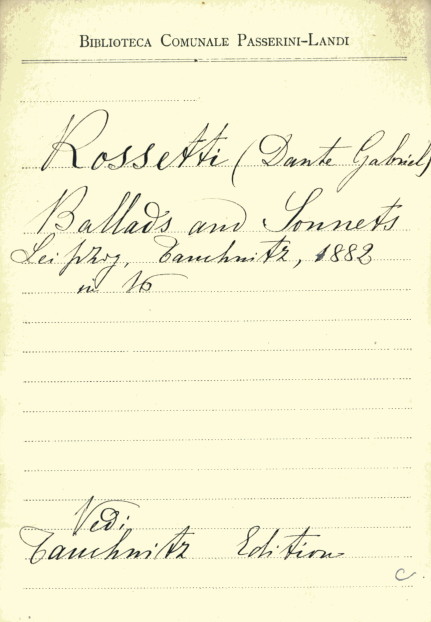 BIBLIOTECA COMUNALE PASSERINI-LANDI
Rossetti (Dante Gabriel)
Ballads and Sonnets
Leipzig, Tauchnitz, 1882
in 16
Vedi:
Tauchnitz Edition
C.